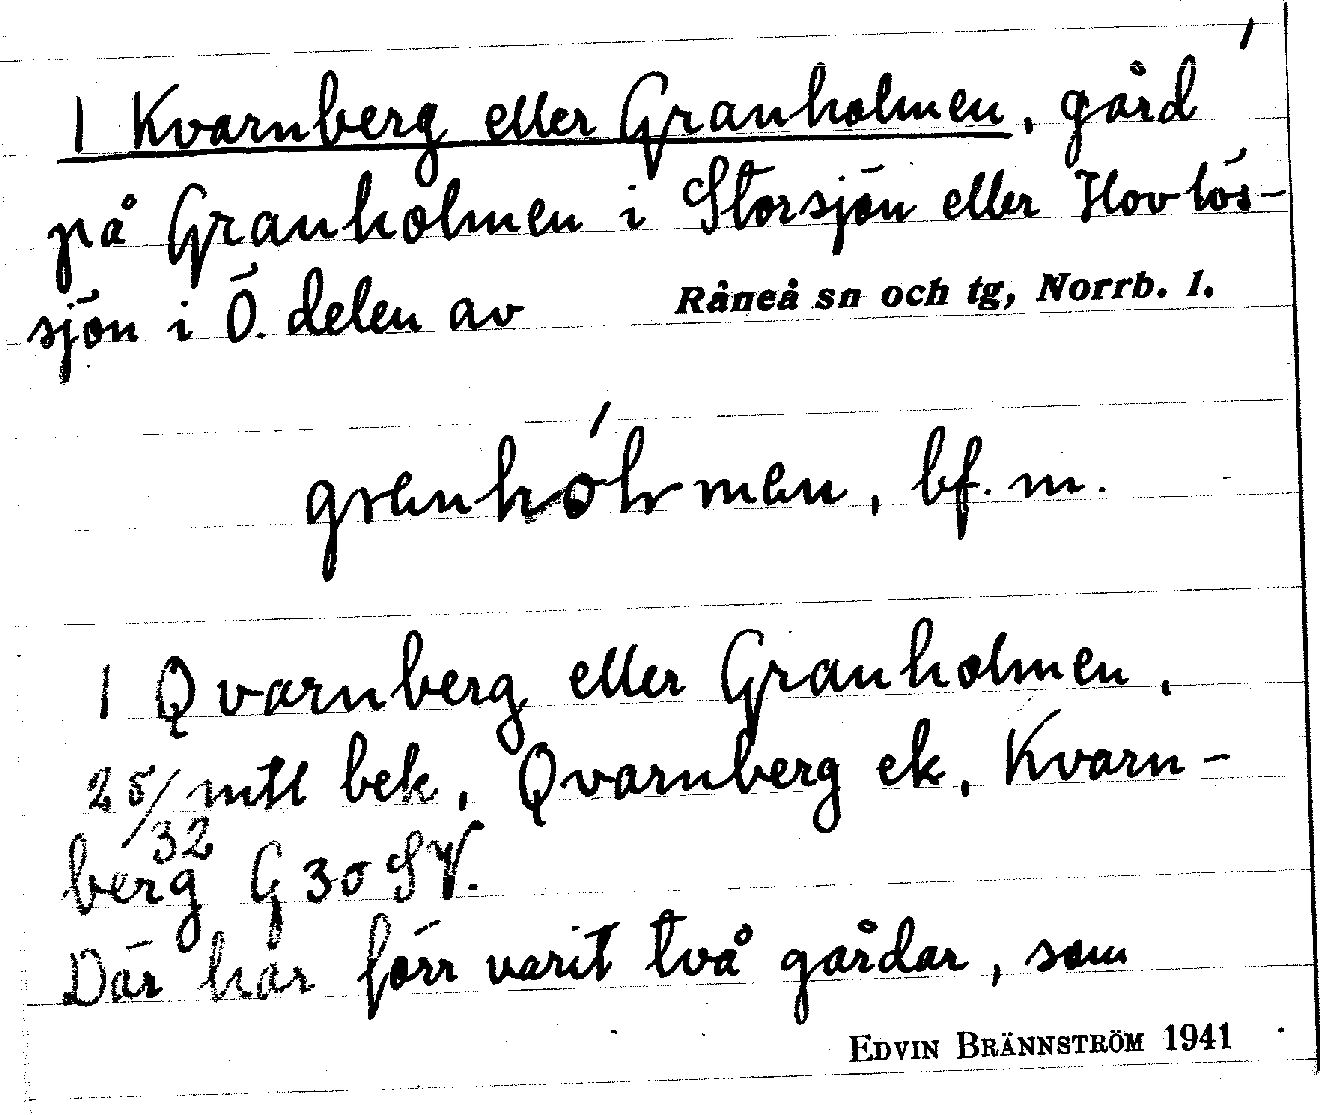 1 Kvarnberg eller Granholmen, gård
på Granholmen i Storsjön eller Hovlös-
sjön i Ö. delen av Råneå sn och tg, Norrb. l.
bf. m.
1 Qvarnberg eller Granholmen,
25/32 mtl bek, Qvarnberg ek, Kvarn-
berg G 30 SV.
Där har förr varit två gårdar, som
EDVIN BRÄNNSTRÖM 1941